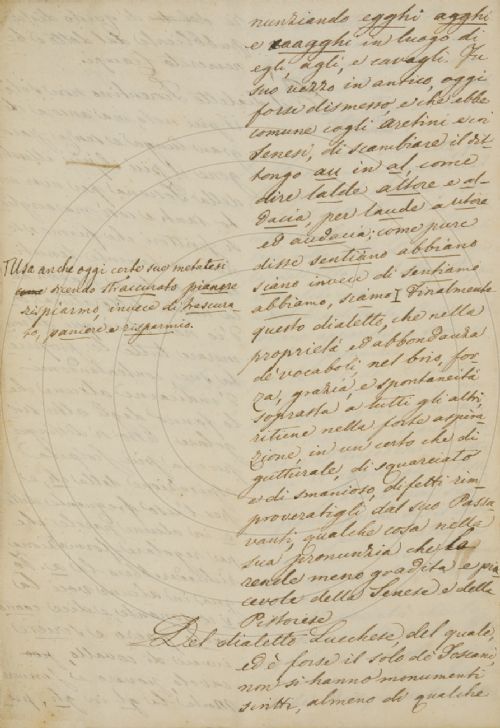 nunziando egghi agghi
e caagghi in luogo di
egli, agli, e cavagli. Fu
suo vezzo in antico, oggi
forse dismesso, e che ebbe
comune cogli Aretini e coi
Senesi, di scambiare il dit-
tongo au in al, come
dire lalde altore e al-
dacia, per laude autore
ed audacia; come pure
disse sentiano abbiano
siano invece di sentiamo
abbiamo, siamo. Finalmente
questo dialetto, che nella
proprietà ed abbondanza
de' vocaboli, nel brio, for-
za, grazia, e spontaneità
soprastà a tutti gli altri,
ritiene nella forte aspira-
zione, in un certo che di
gutturale, di squarciato
e di smanioso, difetti rim-
proveratigli dal suo Passa-
vanti, qualche cosa nella
sua pronunzia che la
rende meno gradita e pia-
cevole della Senese e della
Pistoiese
Del dialetto Lucchese del quale,
ed è forse il solo de' Toscani
non si hanno monumenti
scritti, almeno di qualche
Usa anche oggi certe sue metatesi
dicendo straccurato pianere
rispiarmo, invece di trascura-
to, paniere e risparmio.